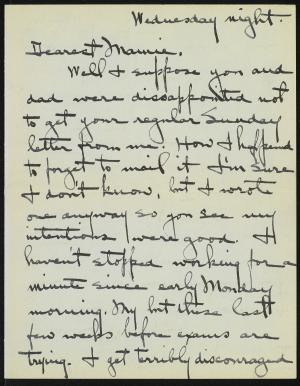 Wednesday night.
Dearest Mamie,
Well I suppose you and
dad were dissappointed not
to get your regular Sunday
letter from me. How I happend
to forget to mail it I'm sure
I don't know, but I wrote
one anyway so you see my
intentions were good. I
haven't stopped working for a
minute since early Monday
morning. My but these last
few weeks before exams are
trying. I get terribly discouraged